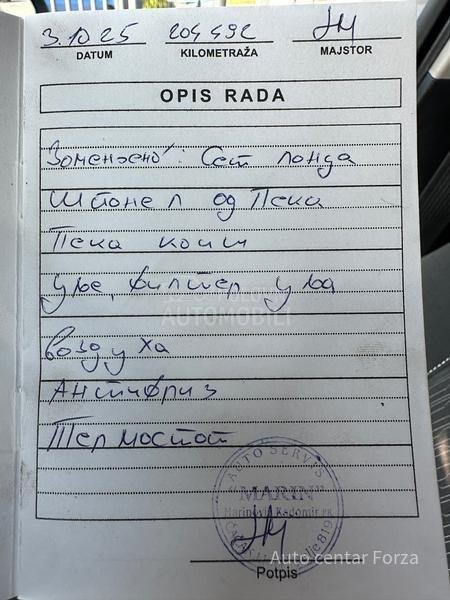 3.10 25 204 492 JM
DATUM KILOMETRAŽA MAJSTOR
OPIS RADA
Замењено: Сет ланца
Шпанел од Пека
Пека каиш
уље, филтер уља
ваздуха
Антифриз
Термостат
AUTOMOBILI
AUTO SERVIS
"MARIN"
Marinović Radomir PR
Auto centar Forza
Potpis